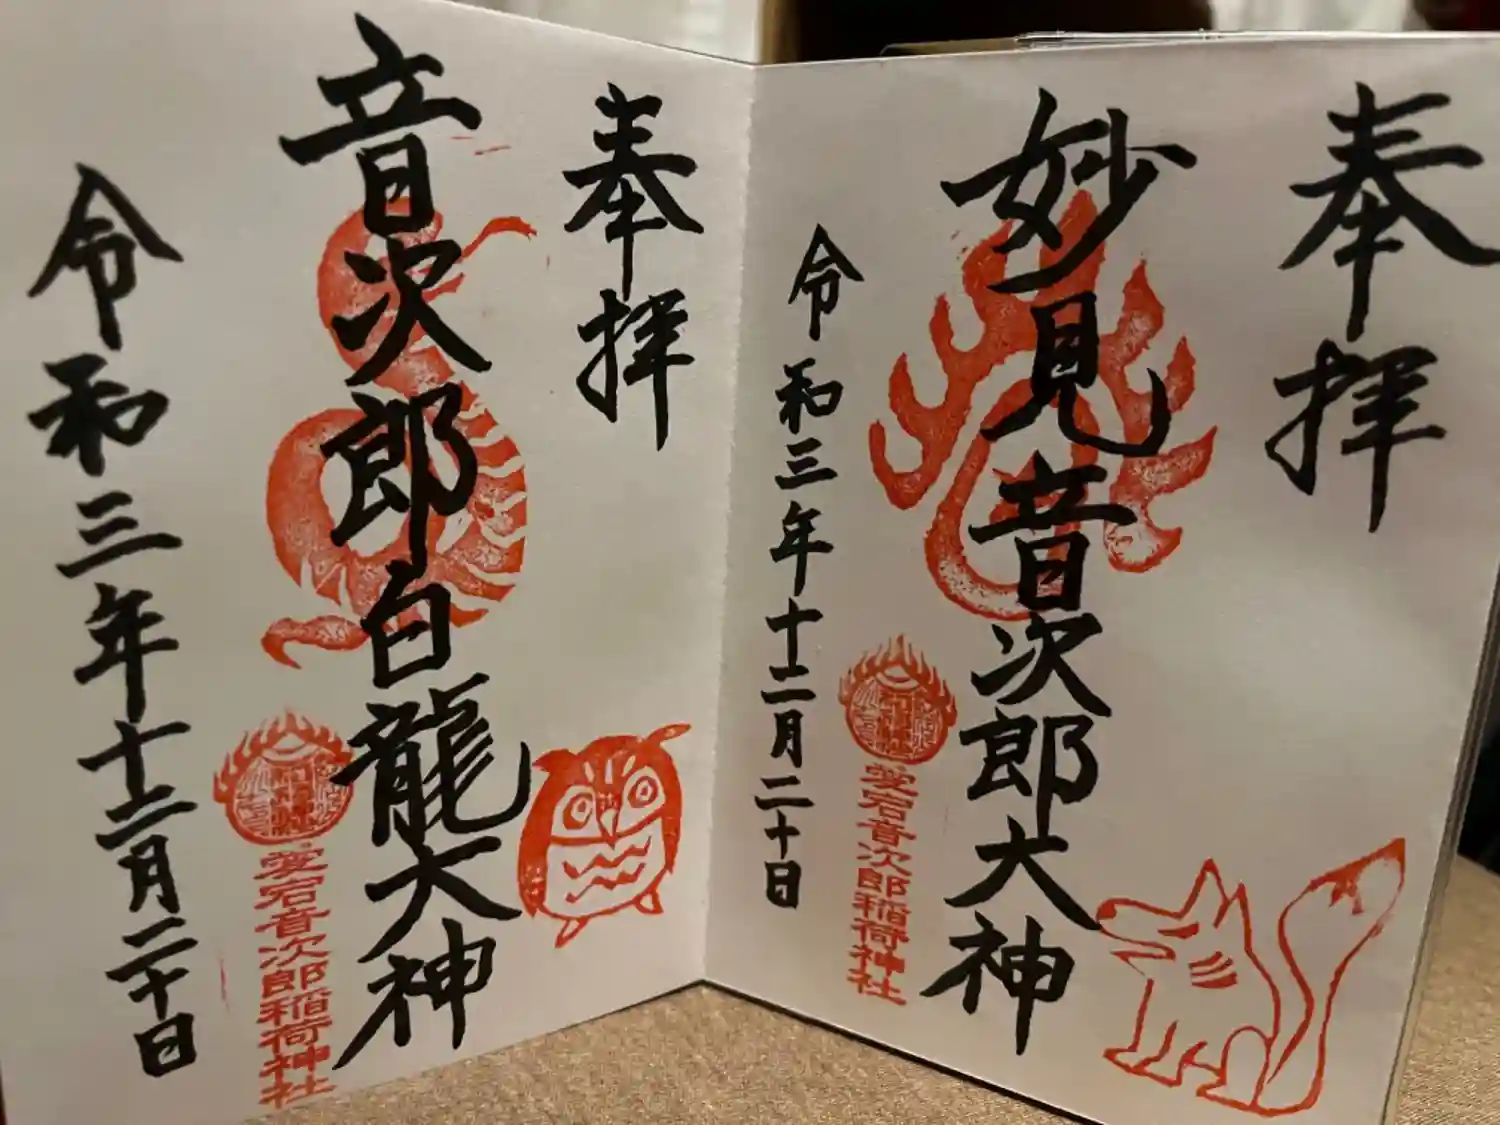 奉拝
妙見音次郎大神
愛宕音次郎稲荷神社
令和三年十二月二十日
奉拝
音次郎白龍大神
愛宕音次郎稲荷神社
令和三年十二月二十日